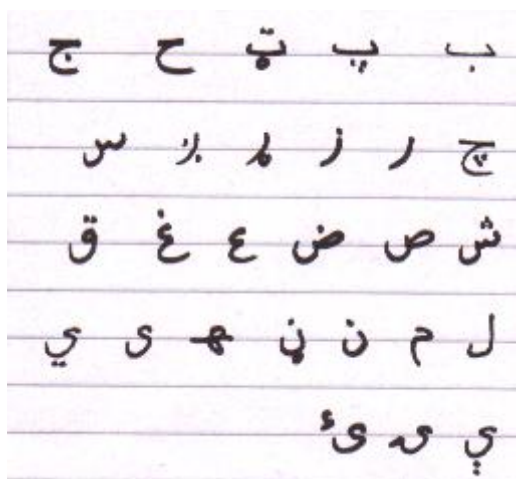 ب پ ټ ح ج
چ ر ز ړ ږ س
ش ص ض ع غ ق
ل م ن ڼ ھ ى ي
ې ۍ ئ